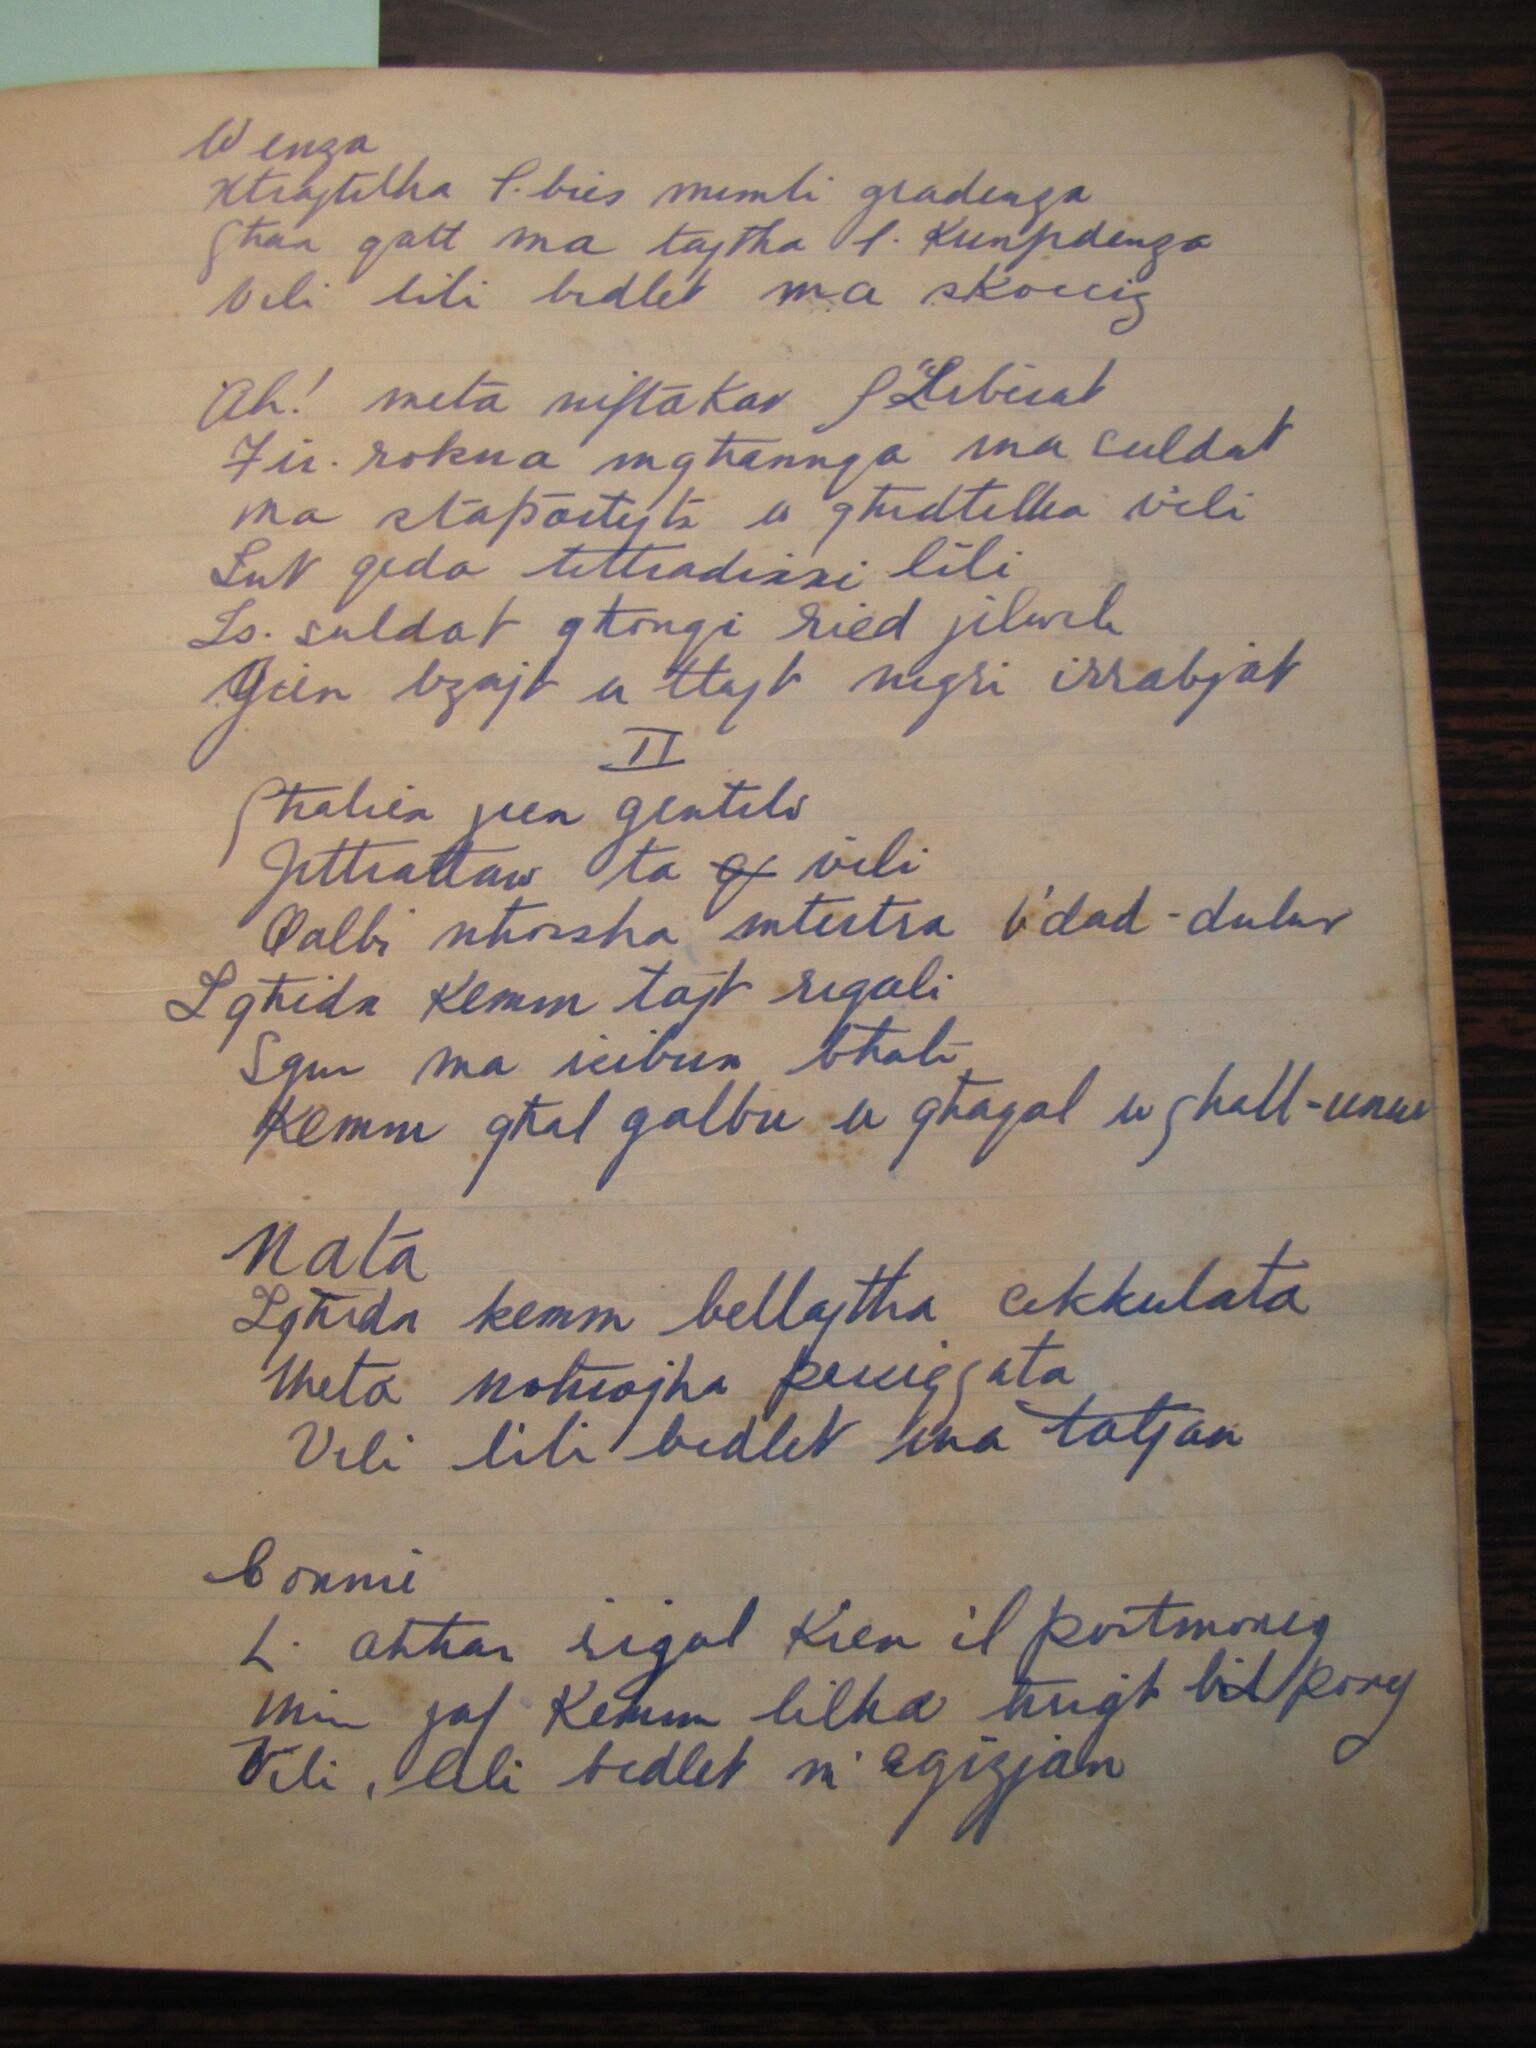 Wenza
Xtrajtilha l. bies mimli gradenza
Għax qatt ma tajtha l. Kunfidenza
Vili lili bidlet ma skoċċiż

Ah! meta niftakar f Żebbiegħ
Fir. rokna mgħannqa ma suldat
ma u għidtilha vili
Lut qeda tittradixxi lili
Is. suldat għonqi ried jilwili
Jien bżajt u tlajt niġri irrabjat
II
Għaliex jien ġentili
Jittrattaw ta vili
Qalbi nħossha mtertra b'dad-dulur
Lgħida Kemm tajt rigali
Sgur ma icibux bħali
Kemm għal qalbu u għaqal u għall-unur

Nata
Lgħida kemm bellajtha ċikkulata
Meta noħroġha passiġġata
Vili lili bidlet ma taljan

Connie
L. aħħar rigal Kien il portmoniġ
Min jaf Kemm lilha ħriġt bil poniġ
Vili, lili bidlet m' eġizzjan